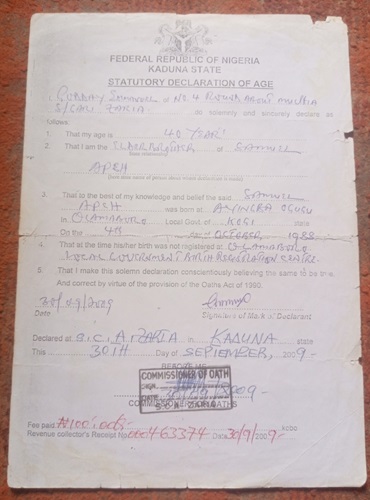 FEDERAL REPUBLIC OF NIGERIA
KADUNA STATE
STATUTORY DECLARATION OF AGE
I, SAMUEL of NO. 4 ROUND ABOUT
S/GARI ZARIA do solemnly and sincerely declare as
follows:
1. That my age is 40 YEARS
2. That I am the ELDER BROTHER of SAMUEL
APEH
3. That at the best of my knowledge and belief the said SAMUEL
APEH was born at OGUGU
in OLAMABORO Local Govt. of KOGI state
On the 4th OCTOBER, 1988
4. That at the time his/her birth was not registered at OLAMABORO
LOCAL GOVERNMENT BIRTH REGISTRATION CENTRE.
5. That I make this solemn declaration conscientiously believing the same to be true
And correct by virtue of the provision of the Oaths Act of 1990.
30/09/2009
Date Signature of Mark of Declarant
Declared at G.C. A ZARIA in KADUNA state
This 30TH Day of SEPTEMBER, 2009-
BEFORE ME
COMMISSIONER OF OATH
COMMISSIONER OF OATHS
Fee paid ₦100:00k- kobo
Revenue collector's Receipt No 000463374 Date 30/9/2009-